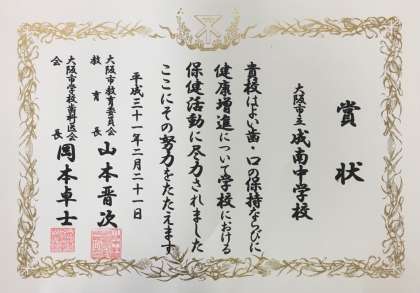 賞状
大阪市立 成南中学校
貴校はよい歯・口の保持ならびに
健康増進について学校における
保健活動に尽力されました
ここにその努力をたたえます
平成三十一年二月二十一日
大阪市教育委員会
教育長 山本晋次
大阪市学校歯科医会
会長 岡本卓士